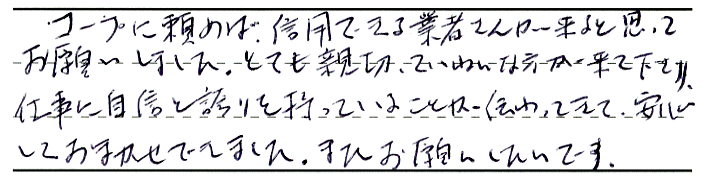 コープに頼めば、信用できる業者さんが来ると思って
お願いしました。とても親切、ていねいな方が来て下さり、
仕事に自信と誇りを持っていることが伝わってきて、安心
しておまかせできました。またお願いしたいです。